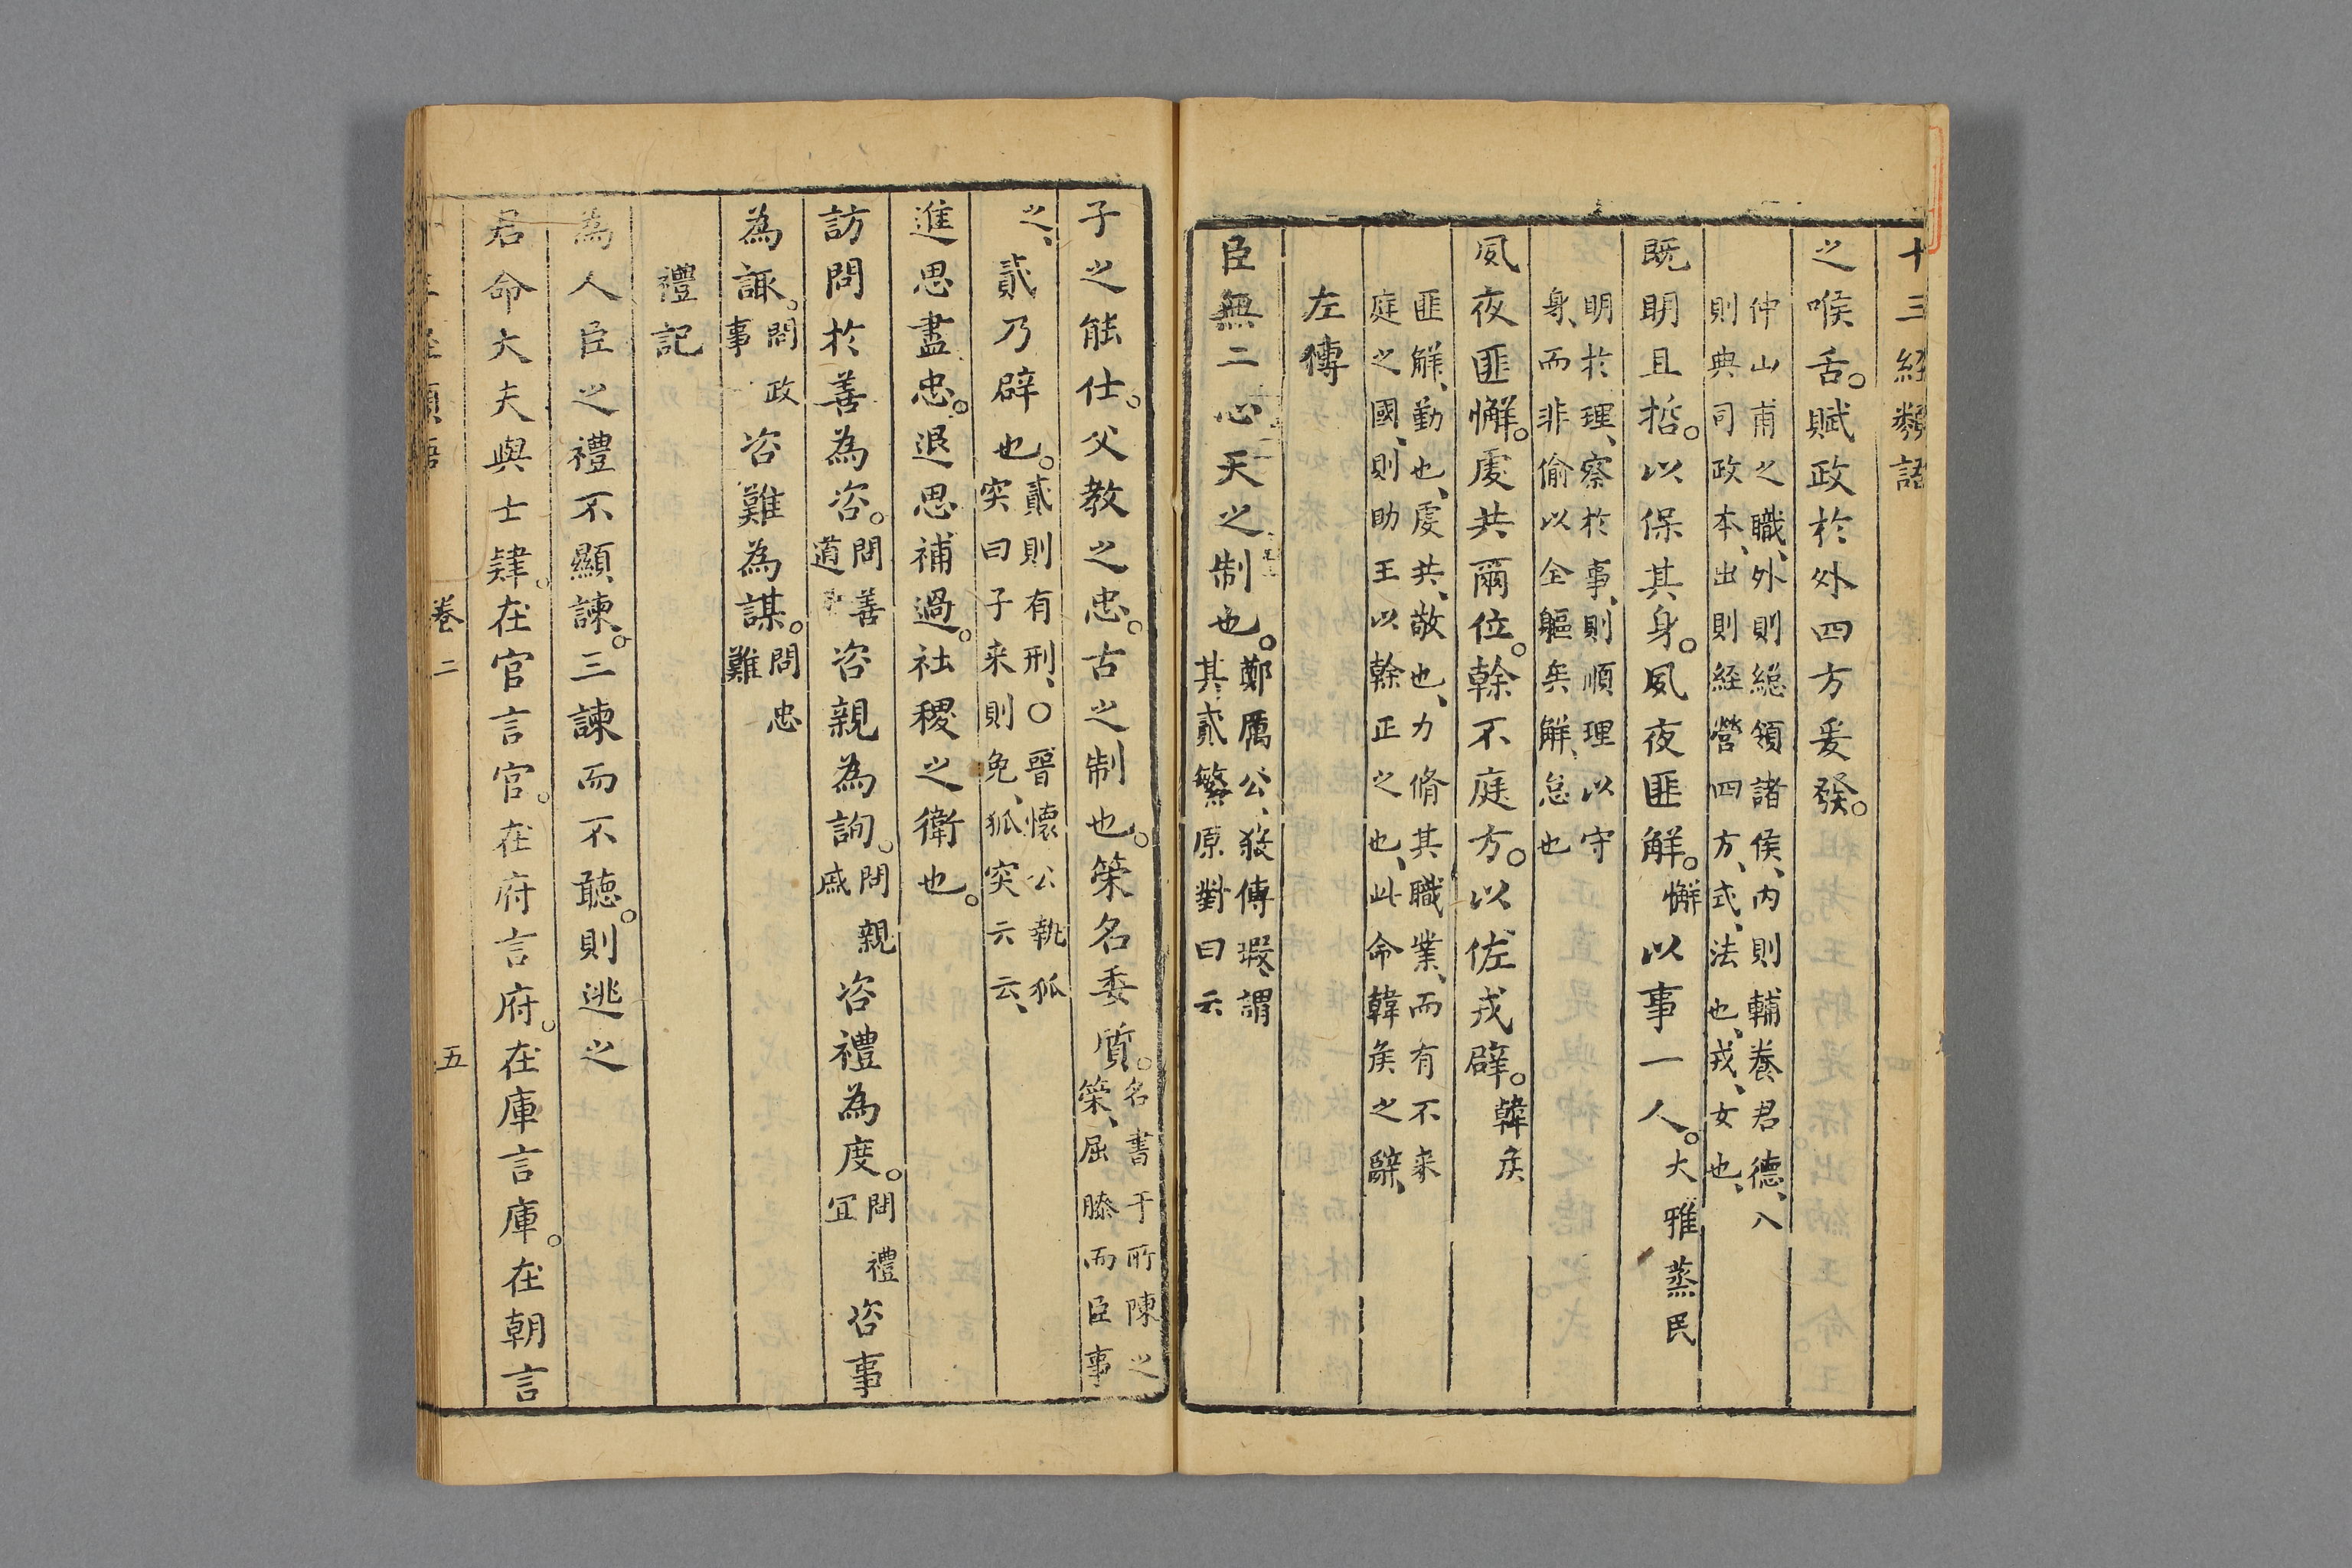 十三經類語
之喉舌。賦政於外四方爰發。
仲山甫之職、外則総領諸侯、内則輔養君德、入
則典司政本、出則経營四方、式、法也、戎、女也、
既明且哲。以保其身。夙夜匪解。懈以事一人。大雅蒸民
明於理、察於事、則順理以守
身、而非偷以全軀矣解、怠也
夙夜匪懈。虔共爾位。榦不庭方。以佐戎辟。韓矦
匪解、勤也、虔共、敬也、力脩其職業、而有不来
庭之國、則助王以榦正之也、此命韓矦之辭、
左傳
臣無二心天之制也。鄭厲公、殺傅瑕、謂
其貳繁原對曰云
子之能仕。父教之忠。古之制也。策名委質。名書于所陳之
策、屈膝而臣事
之、貳乃辟也。貳則有刑、〇晉懷公執狐
突曰子来則免、狐突云云、
進思盡忠。退思補過。社稷之衛也。
訪問於善為咨。問善道咨親為詢。問親戚咨禮為度。問禮冝咨事
為諏。問政事咨難為謀。問忠難
禮記
為人臣之禮不顯諫。三諫而不聽。則逃之
君命大夫與士肄。在官言官。在府言府。在庫言庫。在朝言
卷二
五